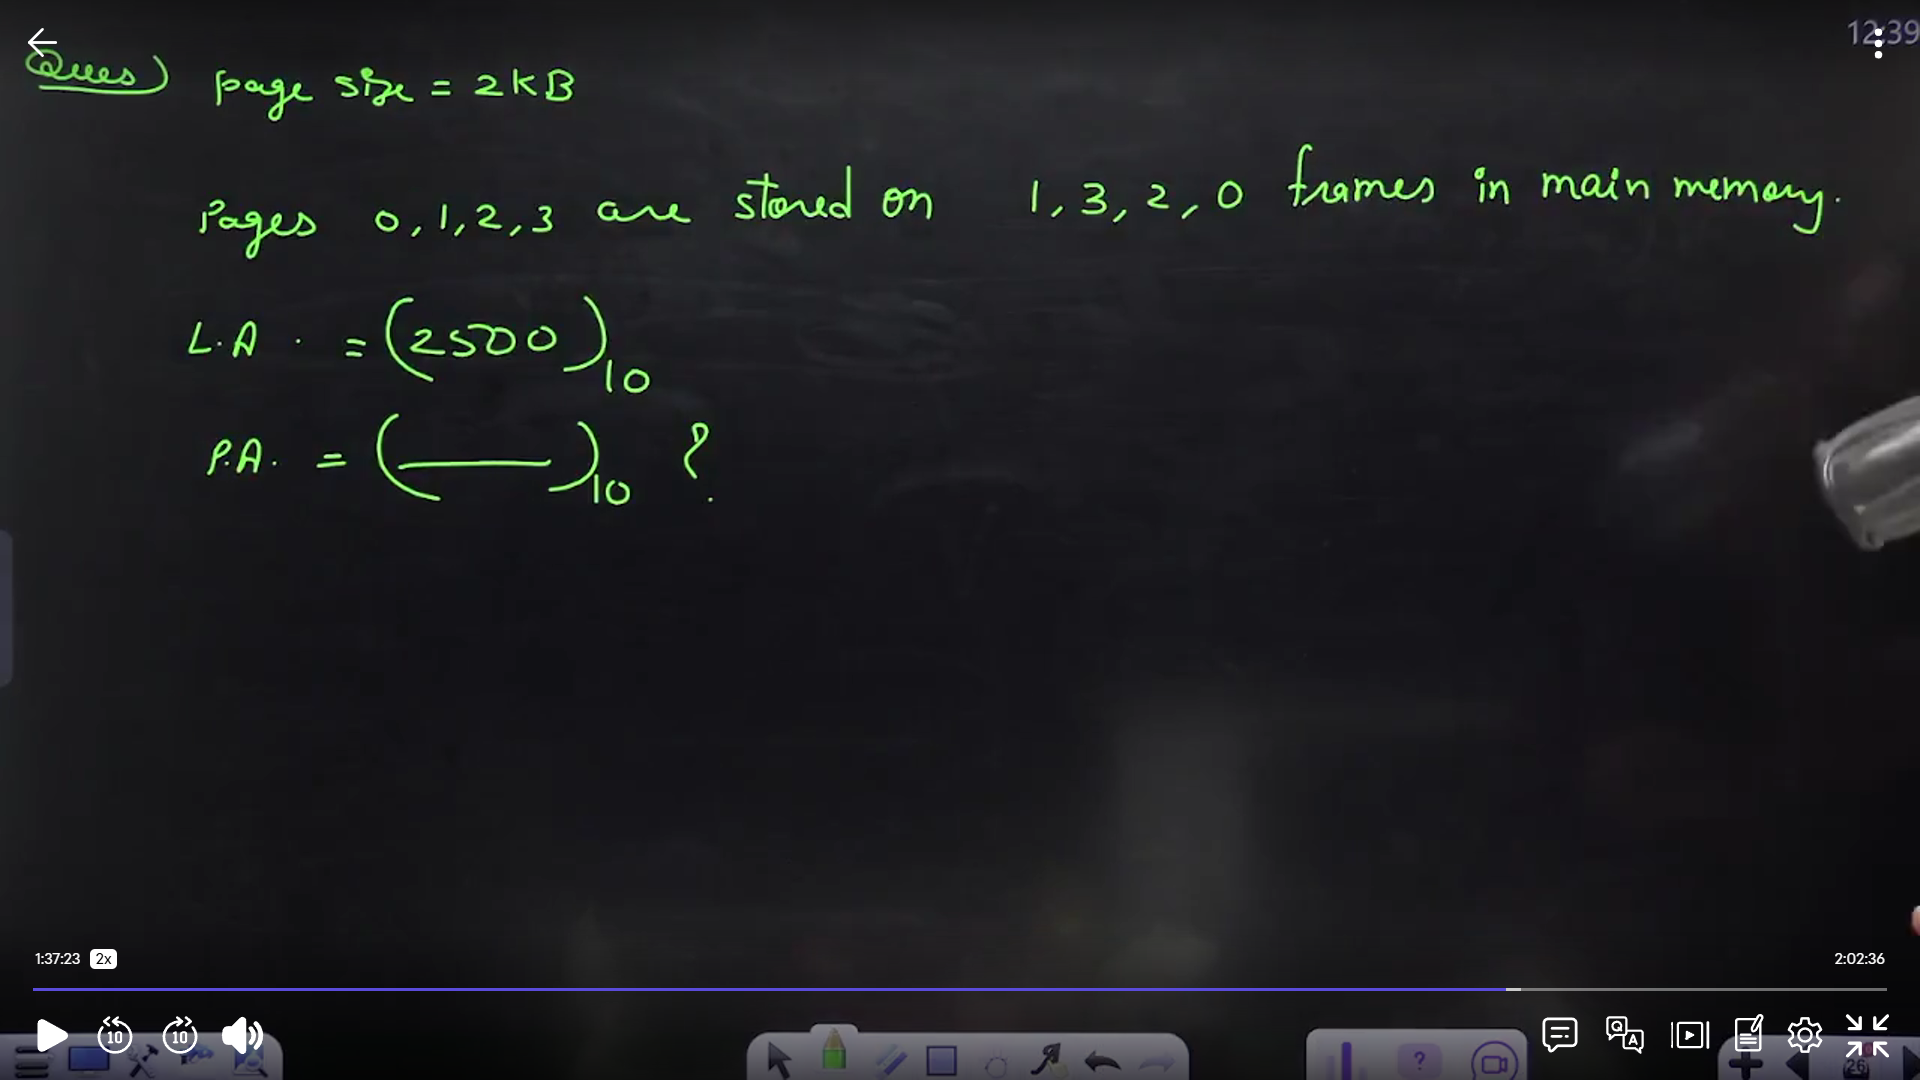 12:39
Ques) page size = 2KB
Pages 0,1,2,3 are stored on 1,3,2,0 frames in main memory.
L.A. = (2500)10
P.A. = (____)10 ?
1:37:23 2x 2:02:36
10 10
26